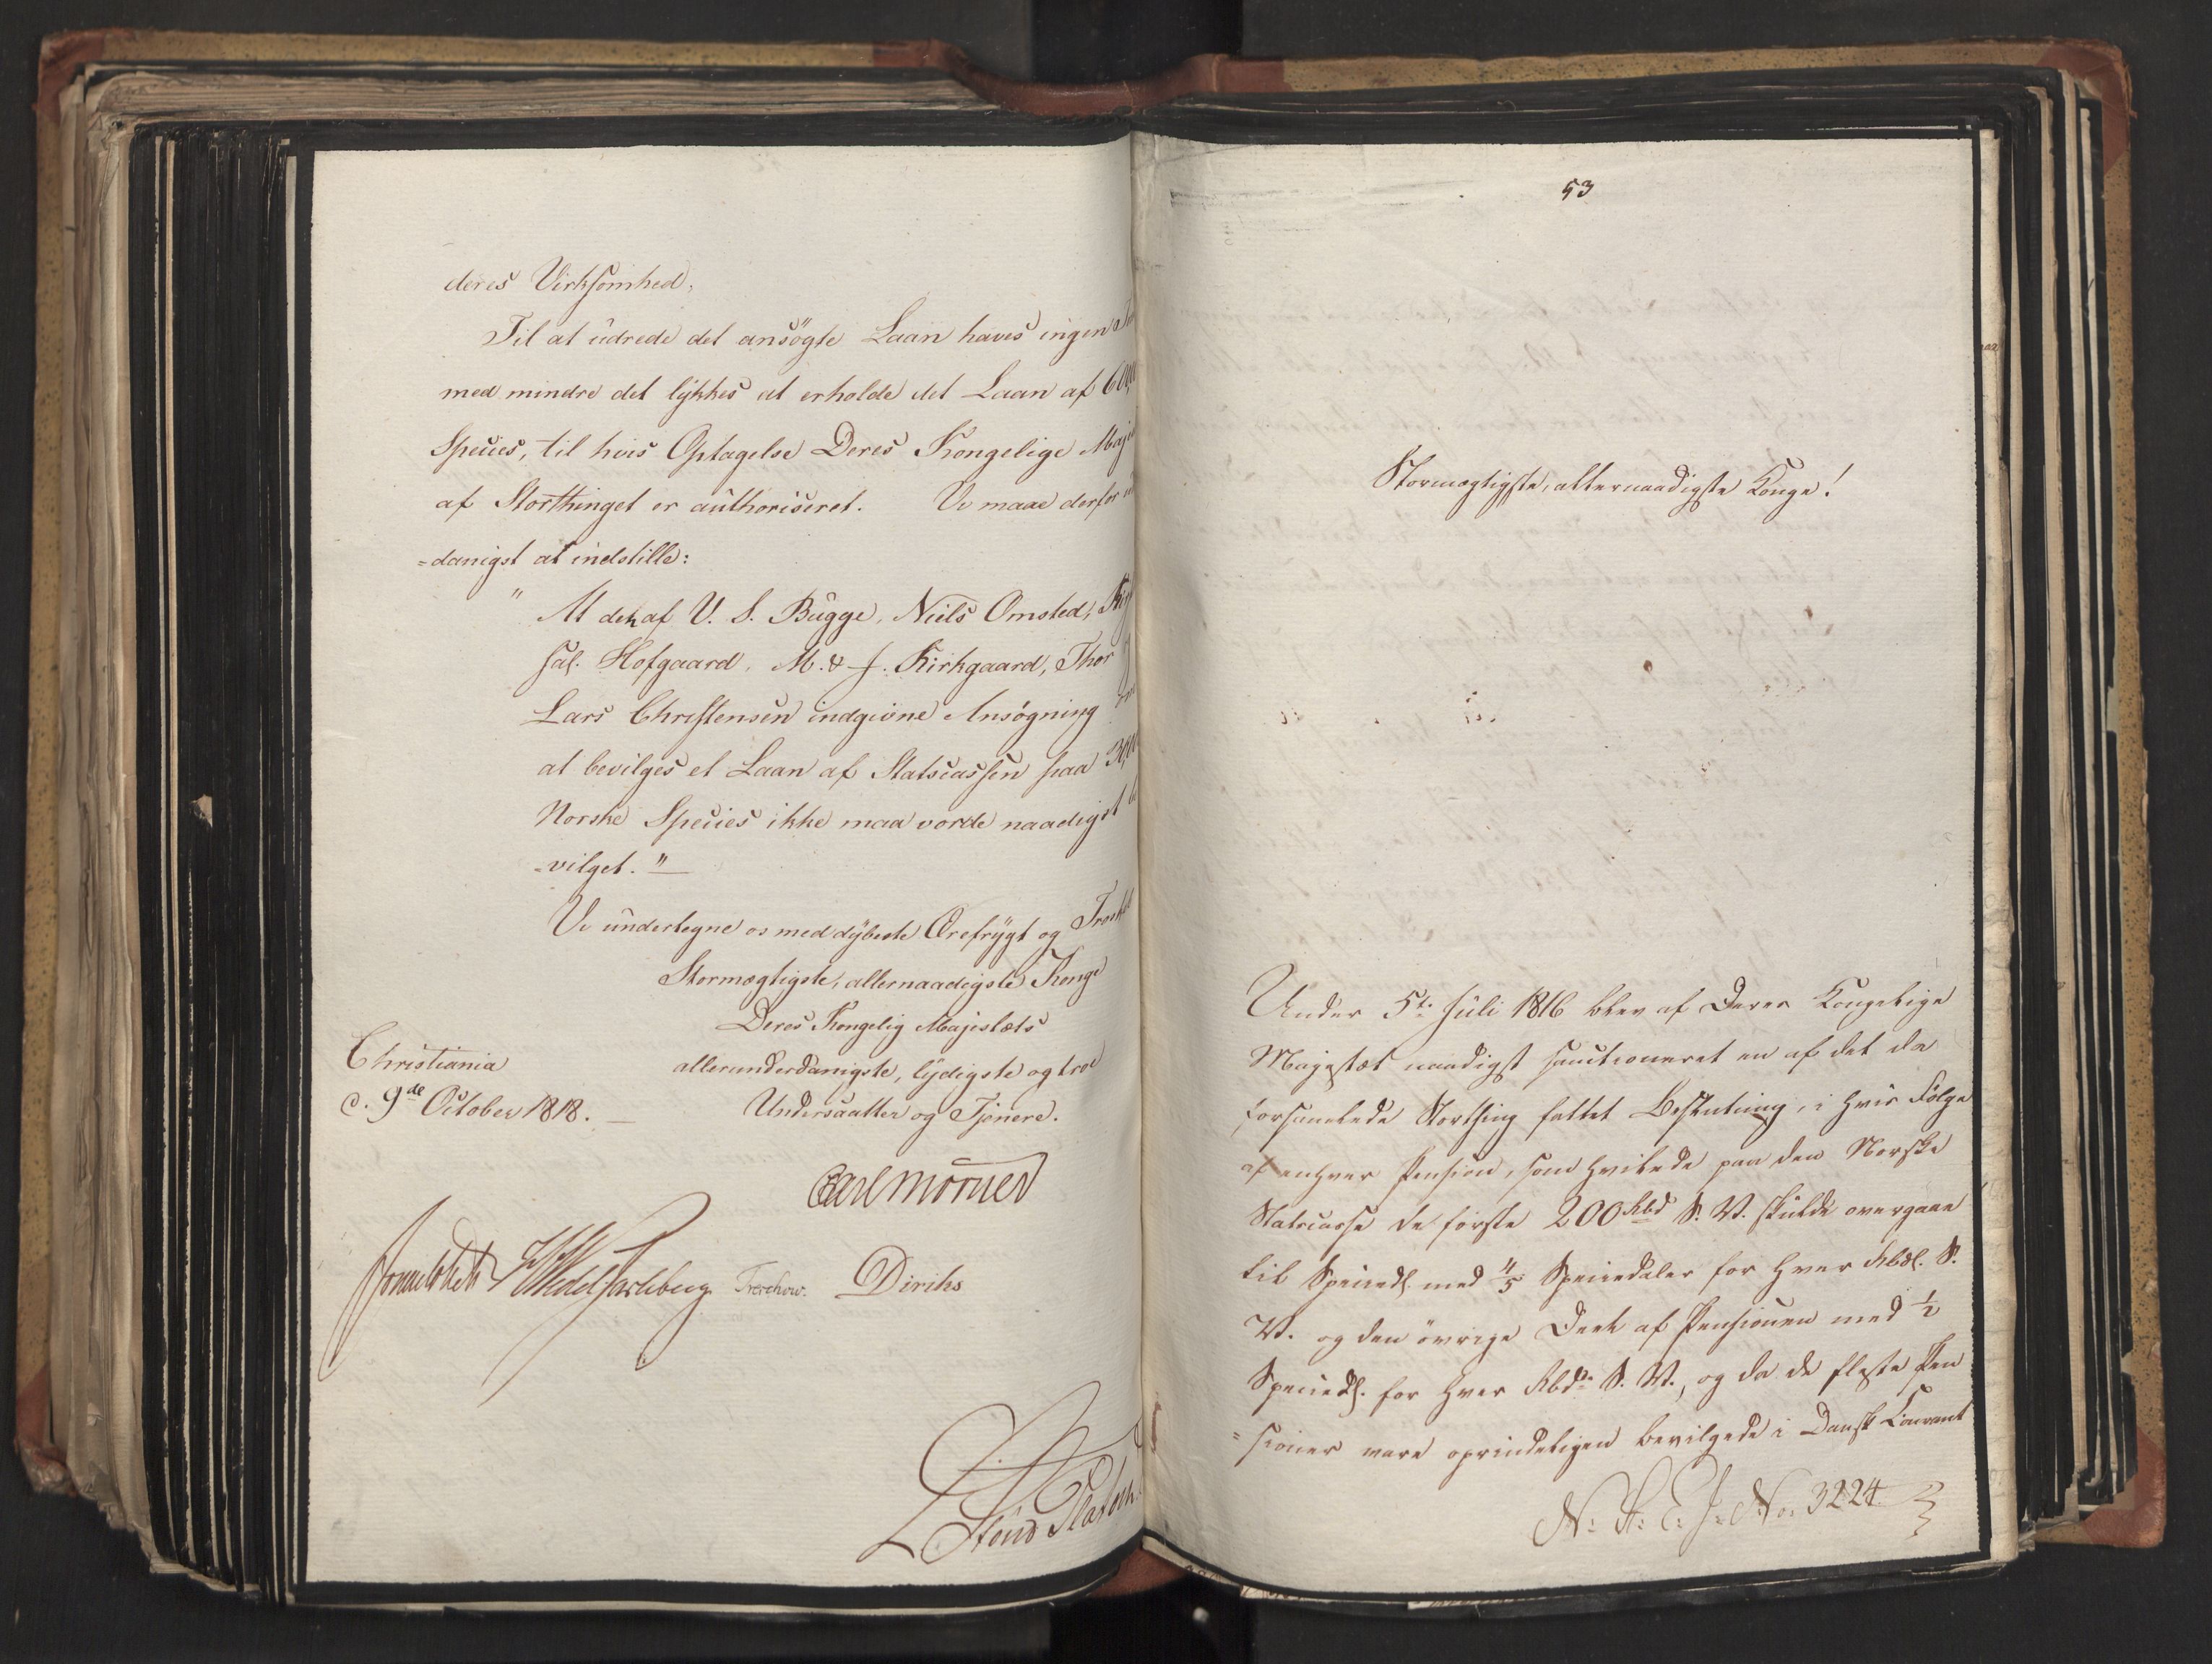 deres Virksomhed,
Til at udrede det ansögte Laan haves ingen
med mindre det lykkes at erholde det Laan af
Species, til hvis Optagelse Deres Kongelige Maje
af Storthinget er authoriseret. Vi maae derfor
=danigst at indstille:
" At den af V. S. Bugge, Niels Omsted,
Sal. Hofgaard, M. & J. Kirkgaard, Thor
Lars Christensen indgivne Ansøgning om
at bevilges et Laan af Statscassen paa
Norske Species ikke maa vorde naadigst
-vilget." —
Vi undertegne os med dybeste Ærefrygt og
Stormægtigste, allernaadigste Konge
Deres Kongelig Majestæts
allerunderdanigste, lydigste og troe
Undersaatter og Tjenere.
Christiania
d. 9de October 1818. —
Carl Mörner
Sommerhielm HWedel Jarlsberg Treschow. Diriks
53
Stormægtigste, allernaadigste Konge!
Under 5te Juli 1816 blev af Deres Kongelige
Majestæt naadigst sanctioneret en af det da
forsamlede Storthing fattet Beslutning, i hvis Følge
af enhver Pension, som hvilede paa den Norske
Statscasse de første 200 Rbd S. V. skulde overgaae
til Speciedl. med 4/5 Speciedaler for hver Rbdl. S.
V. og den övrige Deel af Pensionen med 1/2
Speciedl. for hver Rbdr S. V., og da de fleste Pen
=sioner vare oprindeligen bevilgede i Dansk Courant
J. No. 3224.